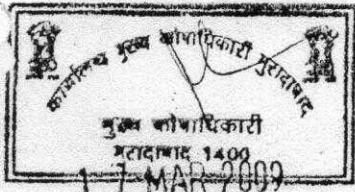 कार्यालय मुख्य कोषाधिकारी मुरादाबाद
मुख्य कोषाधिकारी
मुरादाबाद 1400
17 MAR 2009